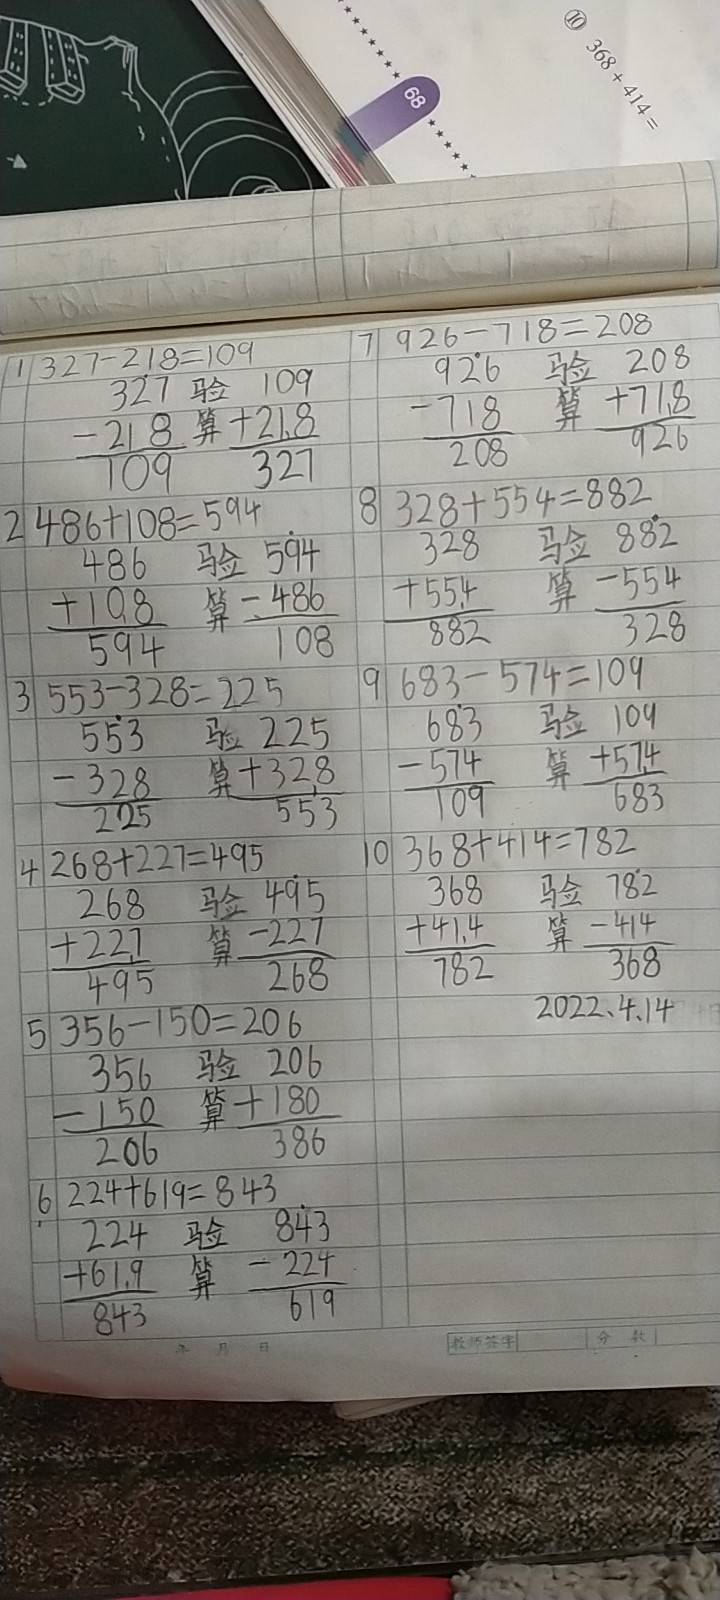 ⑩ 368+414=
68
1 327-218=109
327 验 109
-218 算 +218
109 327
2 486+108=594
486 验 594
+108 算 -486
594 108
3 553-328=225
553 验 225
-328 算 +328
225 553
4 268+227=495
268 验 495
+227 算 -227
495 268
5 356-150=206
356 验 206
-150 算 +180
206 386
6 224+619=843
224 验 843
+619 算 -224
843 619
年 月 日
7 926-718=208
926 验 208
-718 算 +718
208 926
8 328+554=882
328 验 882
+554 算 -554
882 328
9 683-574=109
683 验 109
-574 算 +574
109 683
10 368+414=782
368 验 782
+414 算 -414
782 368
2022、4、14
教师签字 分数